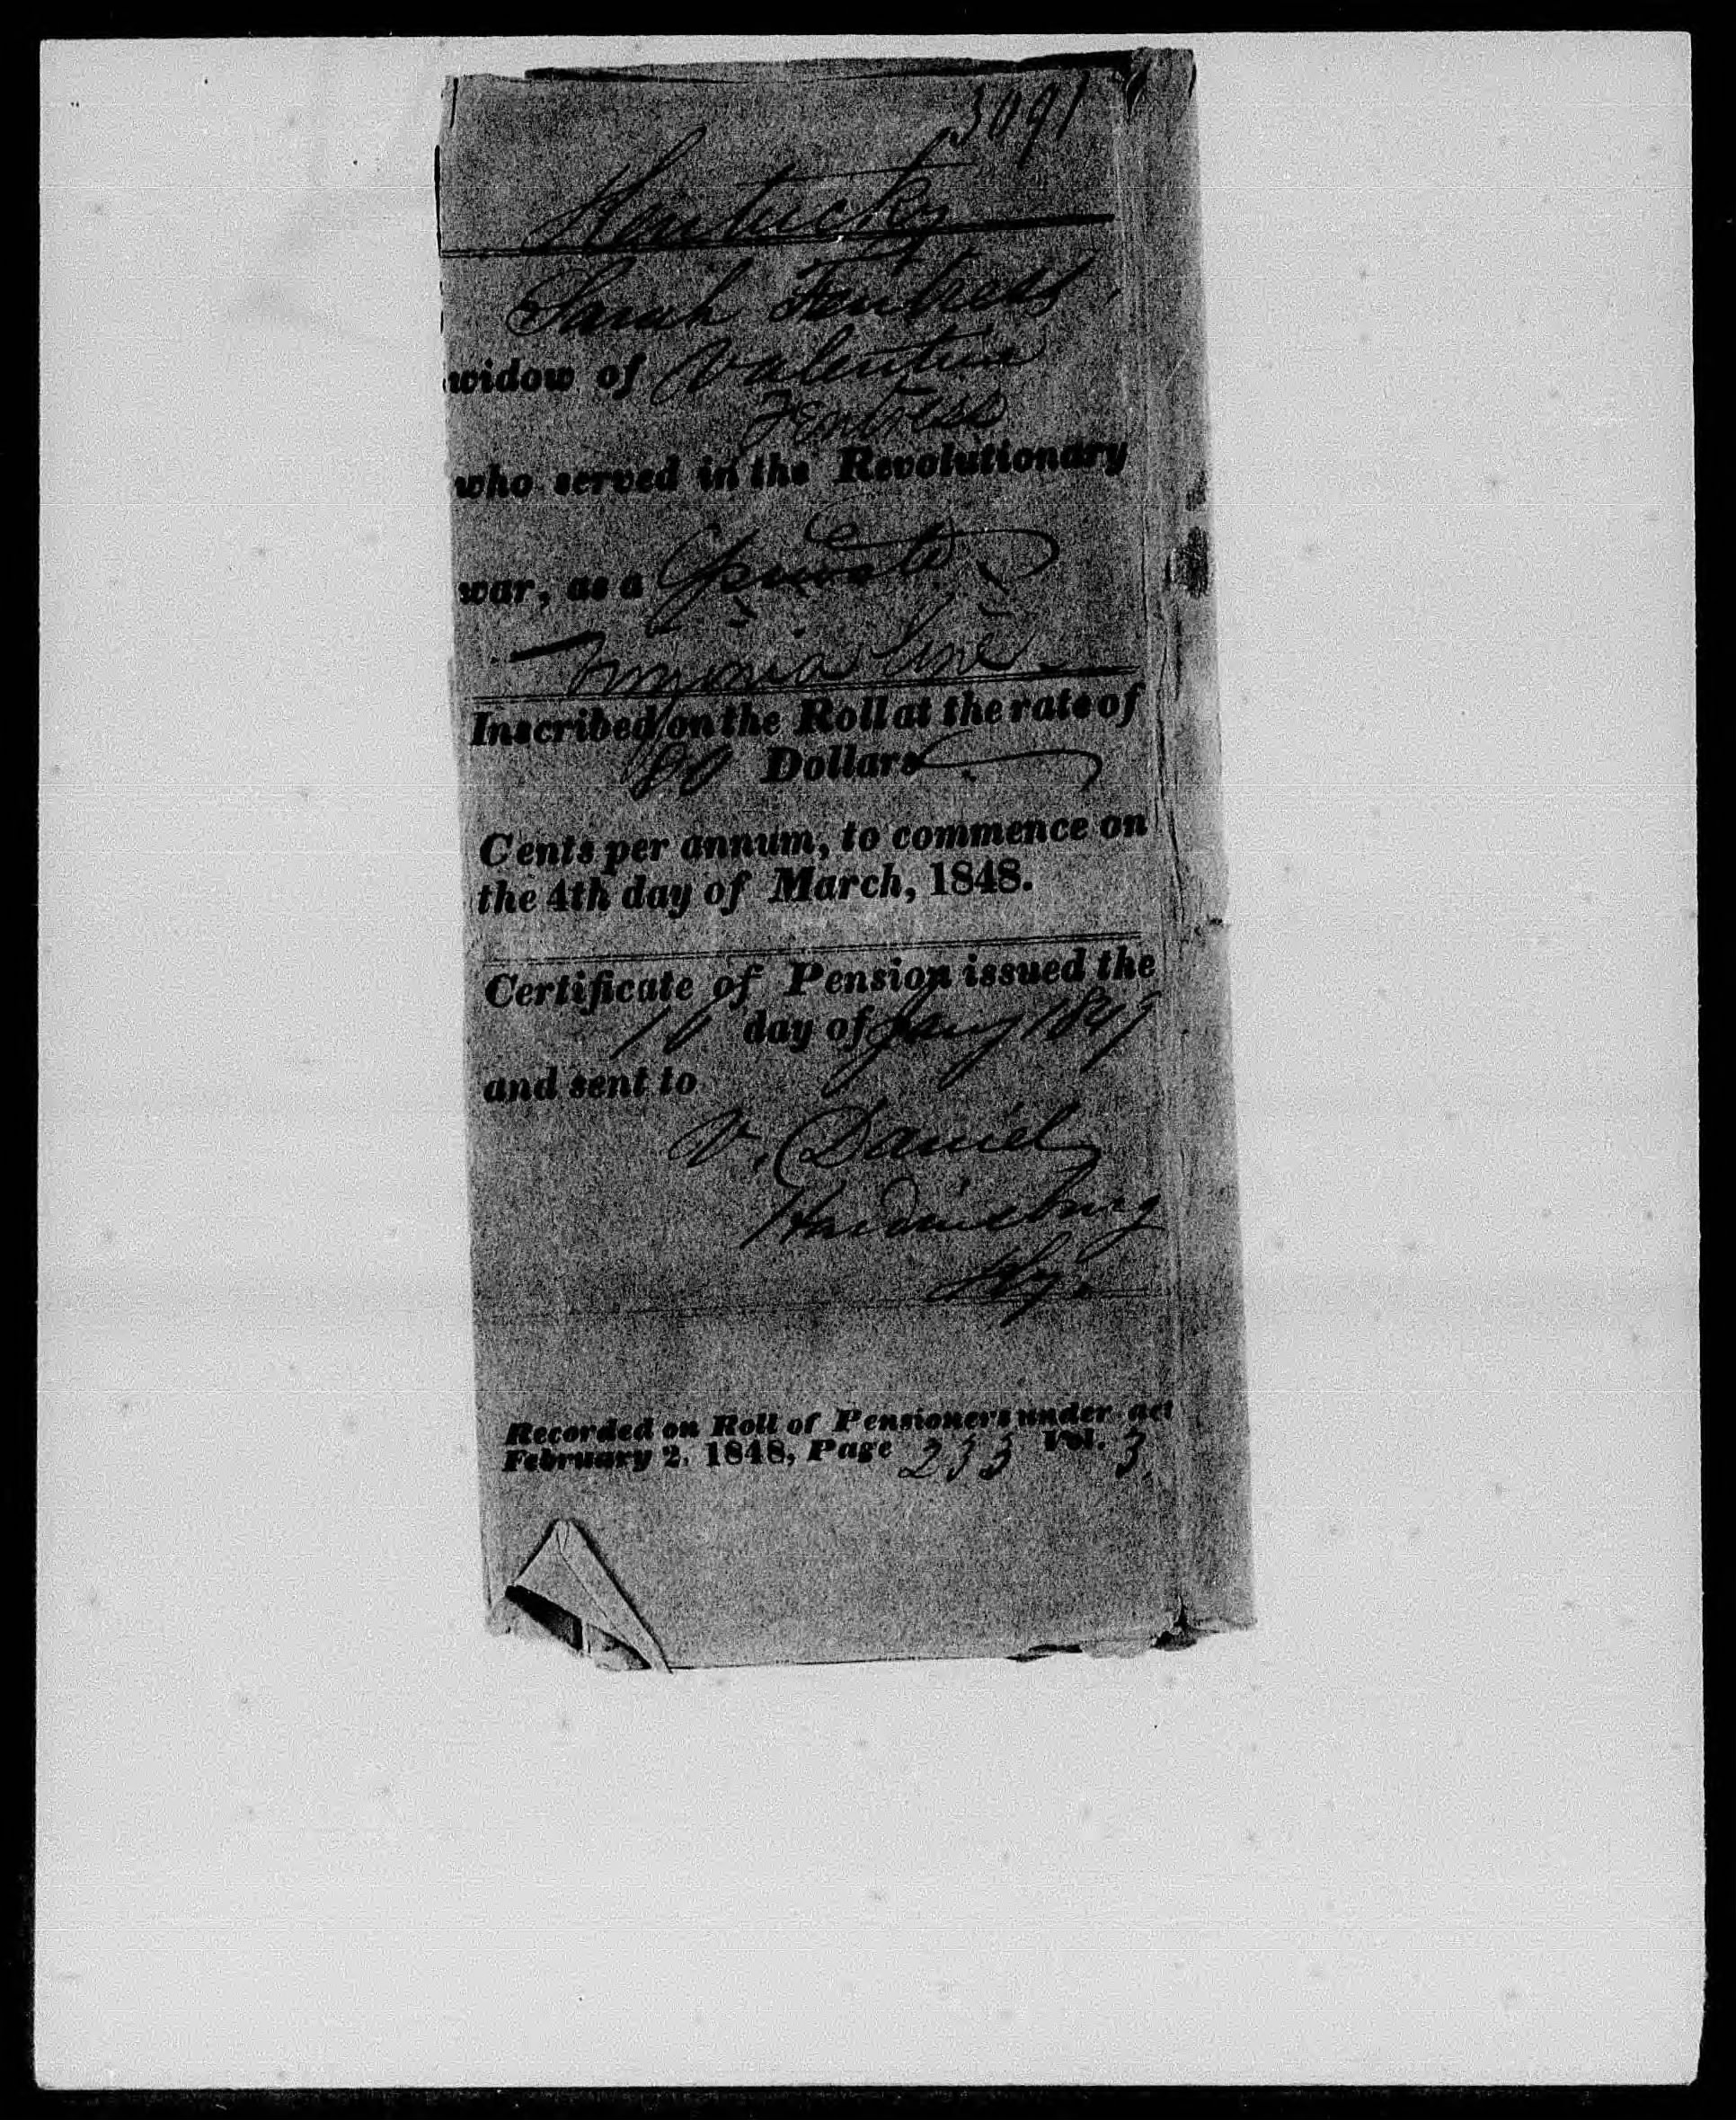 3091
Kentucky
Sarah Fentress,
widow of Valentine
Fentress
who served in the Revolutionary
war, as a Private
Virginia line
Inscribed on the Roll at the rate of
80 Dollars
Cents per annum, to commence on
the 4th day of March, 1848.
Certificate of Pension issued the
10 day of Jany 1849
and sent to
V. Daniel
Hardinsburg
Ky.
Recorded on Roll of Pensioners under act
February 2, 1848, Page 233 Vol. 3.